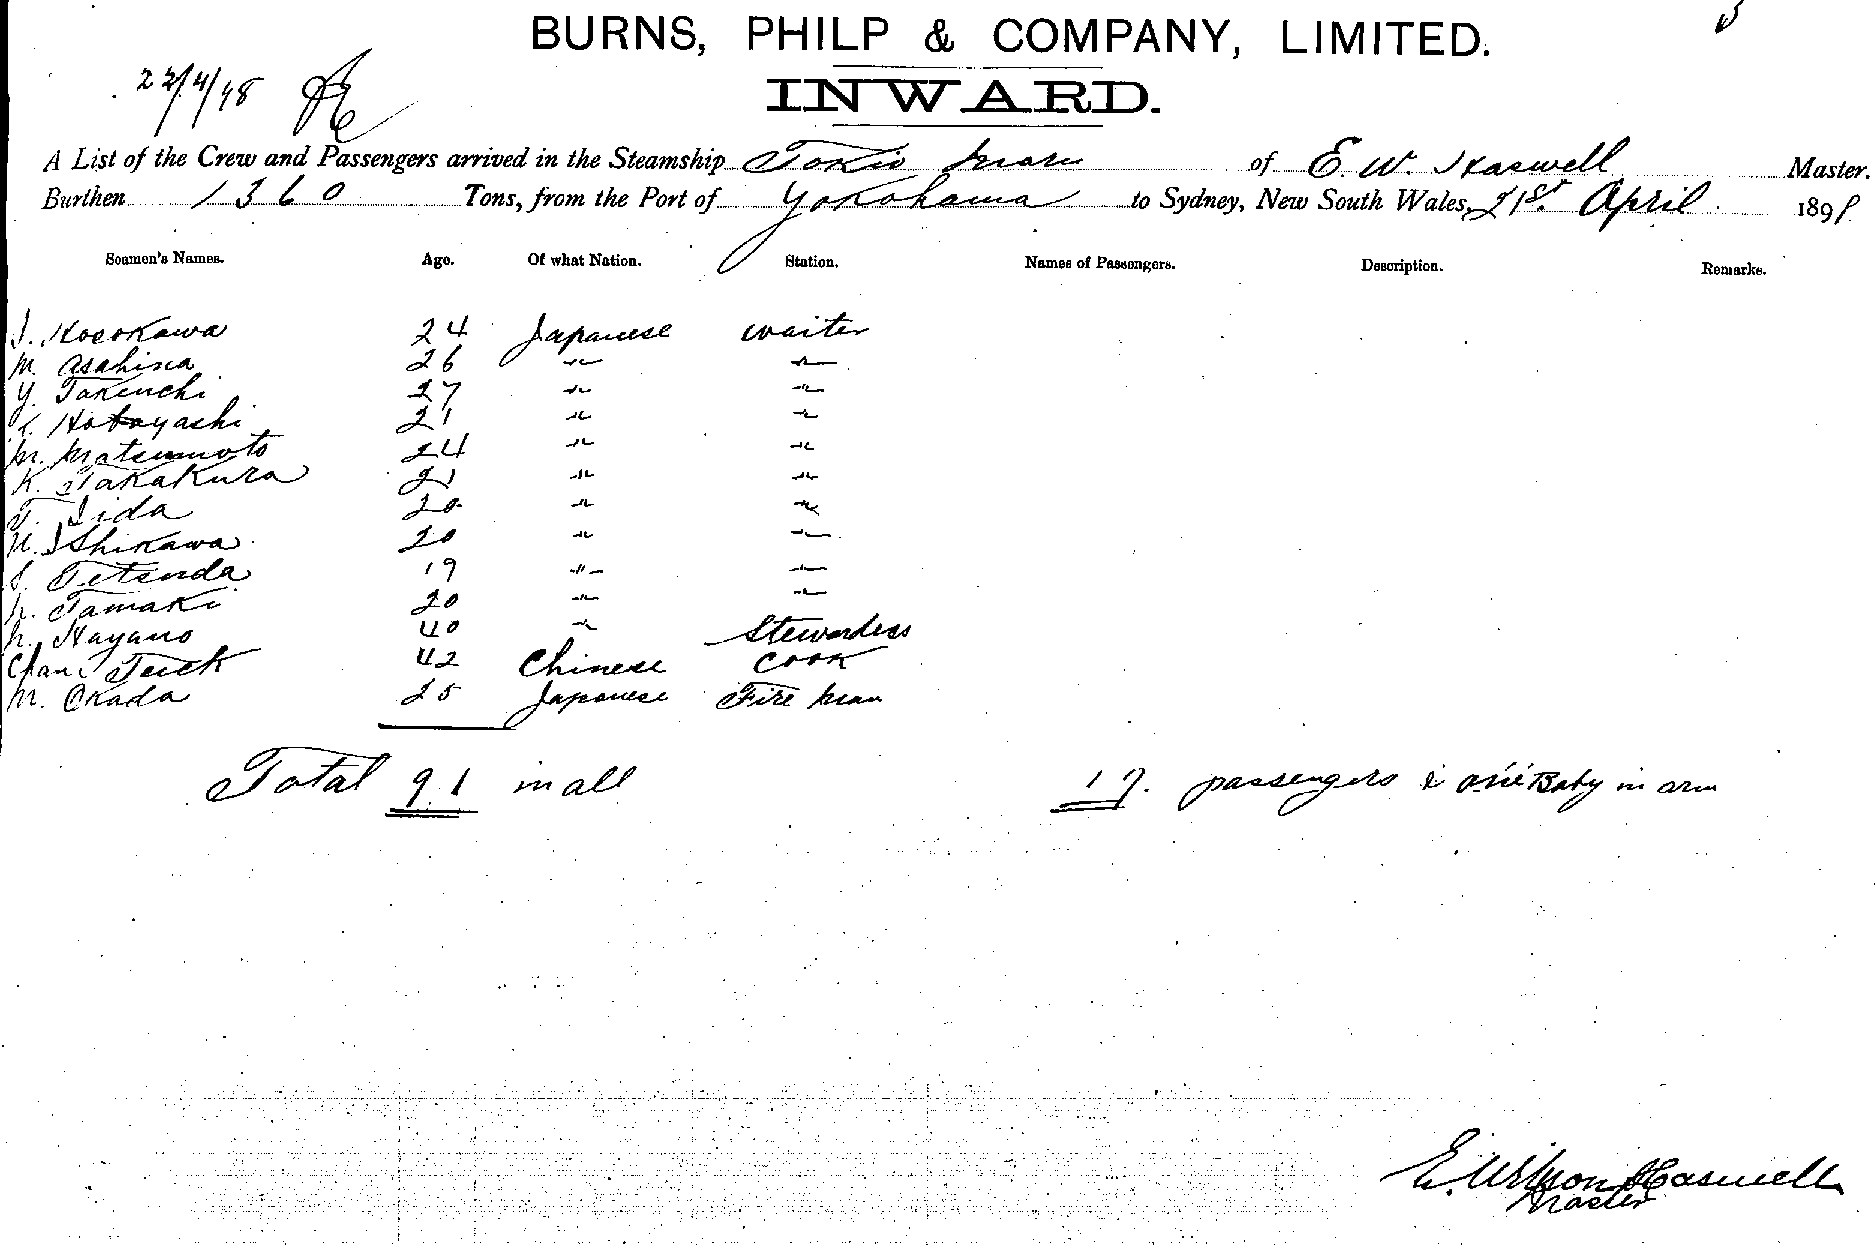 BURNS, PHILP & COMPANY, LIMITED.
INWARD.
22/4/98
A List of the Crew and Passengers arrived in the Steamship Tokio Maru of E. W. Haswell Master.
Burthen 1360 Tons, from the Port of Yokohama to Sydney, New South Wales, 21st April 1898
Seamen's Names. Age. Of what Nation. Station. Names of Passengers. Description. Remarks.
J. Hosokawa 24 Japanese waiter
M. Asahina 26 " "
Y. Takeuchi 27 " "
Kobayashi 21 " "
M. Matsumoto 24 " "
K. Takakura 21 " "
T. Iida 20 " "
Ishikawa 20 " "
Tetsuda 19 " "
Tamaki 20 " "
Hayano 40 " Stewardess
Chan Teuck 42 Chinese Cook
M. Okada 25 Japanese Fire man
Total 91 in all 17. passengers & one Baby in arm
E. Wilson Haswell
Master